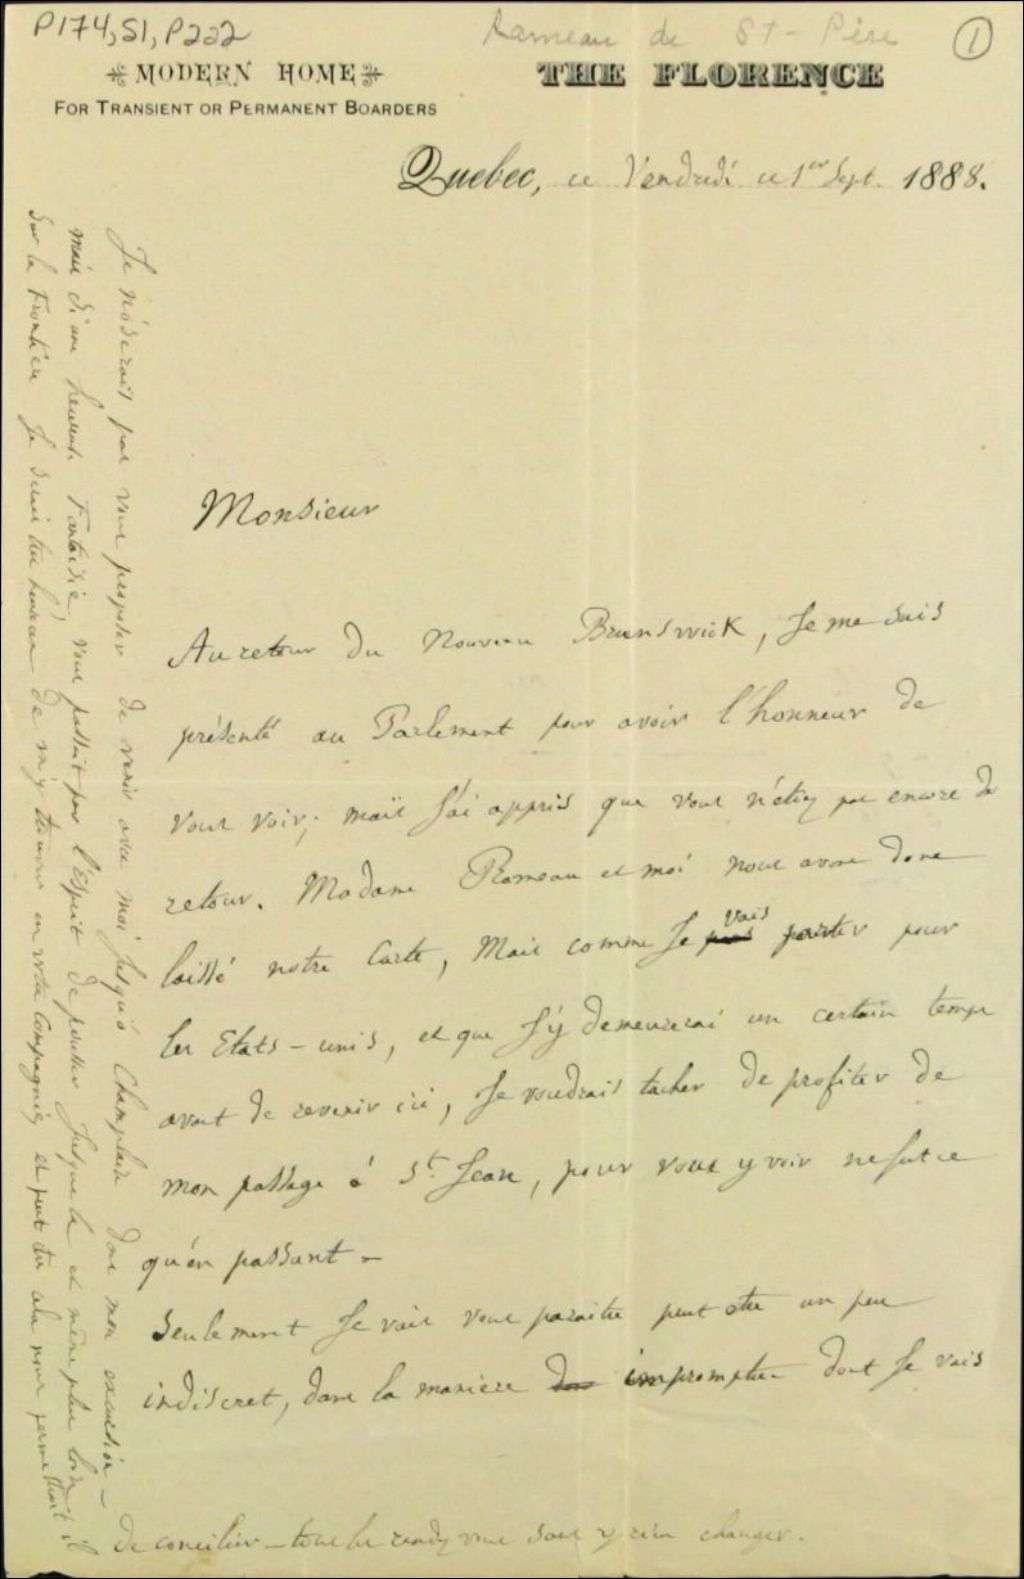 P174, S1, P222
Rameau de St-Père
1
MODERN HOME
THE FLORENCE
FOR TRANSIENT OR PERMANENT BOARDERS
Quebec, ce Vendredi ce 1er Sept. 1888.
Monsieur
Au retour du Nouveau Brunswick, Je me suis
présenté au Parlement pour avoir l'honneur de
vous voir; mais J'ai appris que vous n'étiez pas encore de
retour. Madame Rameau et moi nous avons donc
laissé notre Carte, Mais comme Je vais partir pour
les Etats-unis, et que J'y demeurerai un certain temps
avant de revenir ici, Je voudrais tacher de profiter de
mon passage à St. Jean, pour vous y voir ne fut ce
qu'en passant -
Seulement Je vais vous paraitre peut etre un peu
indiscret, dans la manière impromptue dont Je vais
Je n'oserais pas vous proposer de venir avec moi Jusqu'à Champlain dans mon excursion -
mais si une heureuse Fantaisie, vous passait par l'Esprit de pousser Jusque là et même plus loin
sur la Frontière Je serais très heureux de m'y trouver en votre Compagnie, et peut être cela nous permettrait il
de concilier - tous les rendez vous sans y rien changer.